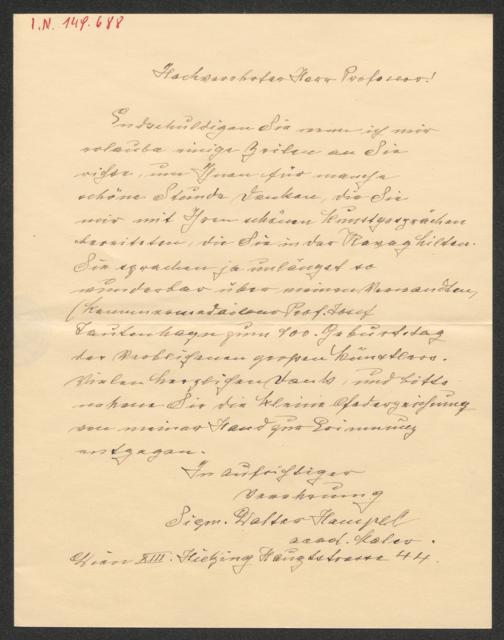 I.N. 149.688
Hochverehrter Herr Professor!
Endschuldigen Sie wenn ich mir
erlaube einige Zeilen an Sie
richte, um Ihnen für manche
schöne Stunde danken, die Sie
mir mit Ihren schönen Kunstgesprächen
bereiteten, die Sie in der Ravag hilten.
Sie sprachen ja unlängst so
wunderbar über meinen Verwandten,
Prof. Josef
Tautenhayn zum 100. Geburtstag
des Verblichenen großen Künstlers.
Vielen herzlichen Dank, und bitte
nehmen Sie die kleine Federzeichnung
von meiner Hand zur Erinnung
entgegen.
In aufrichtiger
Verehrung
Sigm. Walter Hampel
acad. Maler.
Wien XIII. Hietzing Hauptstrasse 44.